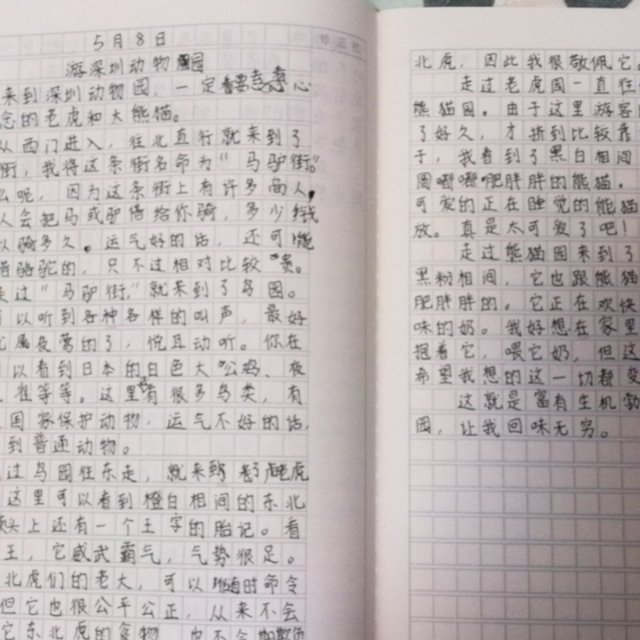 5月8日
游深圳动物园
来到深圳动物园,一定 心
念的老虎和大熊猫。
从西门进入,往北直行就来到了
街,我将这条街名命为“马驴街。”
么呢,因为这条街上有许多商人
人会把马或驴借给你骑,多少钱
以骑多久。运气好的话,还可能
骆驼的,只不过相对比较 贵。
走过“马驴街”就来到了鸟园。
以听到各种各样的叫声,最好
属夜莺的了,悦耳动听。你在
以看到日本的白色大公鸡,夜
准等等。这里有很多鸟类,有
国家保护动物,运气不好的话
到普通动物。
过鸟园往东走,就来到了 虎
这里可以看到橙白相间的东北
头上还有一个王字的胎记。看
王,它威武霸气,气势很足。
北虎们的老大,可以 的命令
但它也很公平公正,从来不会
它东北虎的食物,也不会
北虎,因此我很敬佩它
走过老虎园一直往
熊猫园。由于这里游客
了好久,才挤到比较靠
子,我看到了黑白相间
圆 肥胖胖的熊猫。
可爱的正在睡觉的熊猫
放。真是太可爱了吧!
走过熊猫园来到了
黑粉相间,它也跟熊猫
肥胖胖的。它正在欢快
味的奶。我好想在家里
抱着它,喂它奶,但这
希里我想的这一切都
这就是富有生机勃
园,让我回味无穷。